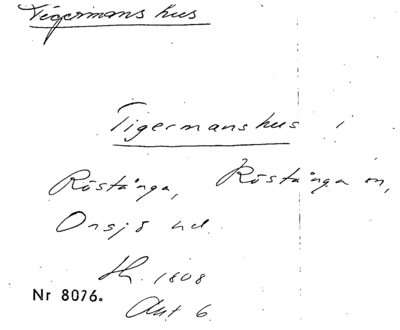 Tigermans hus
Tigermanshus i
Röstånga, Röstånga sn,
Onsjö hd.
1808
Nr 8076.
Akt 6